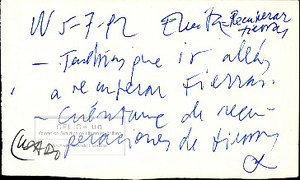 W 5-7-82 Recuperar
tierras
— Tendrías que ir allás
a recuperar tierras.
— Cuéntame de recu
peraciones de tierras
CEDICH UC